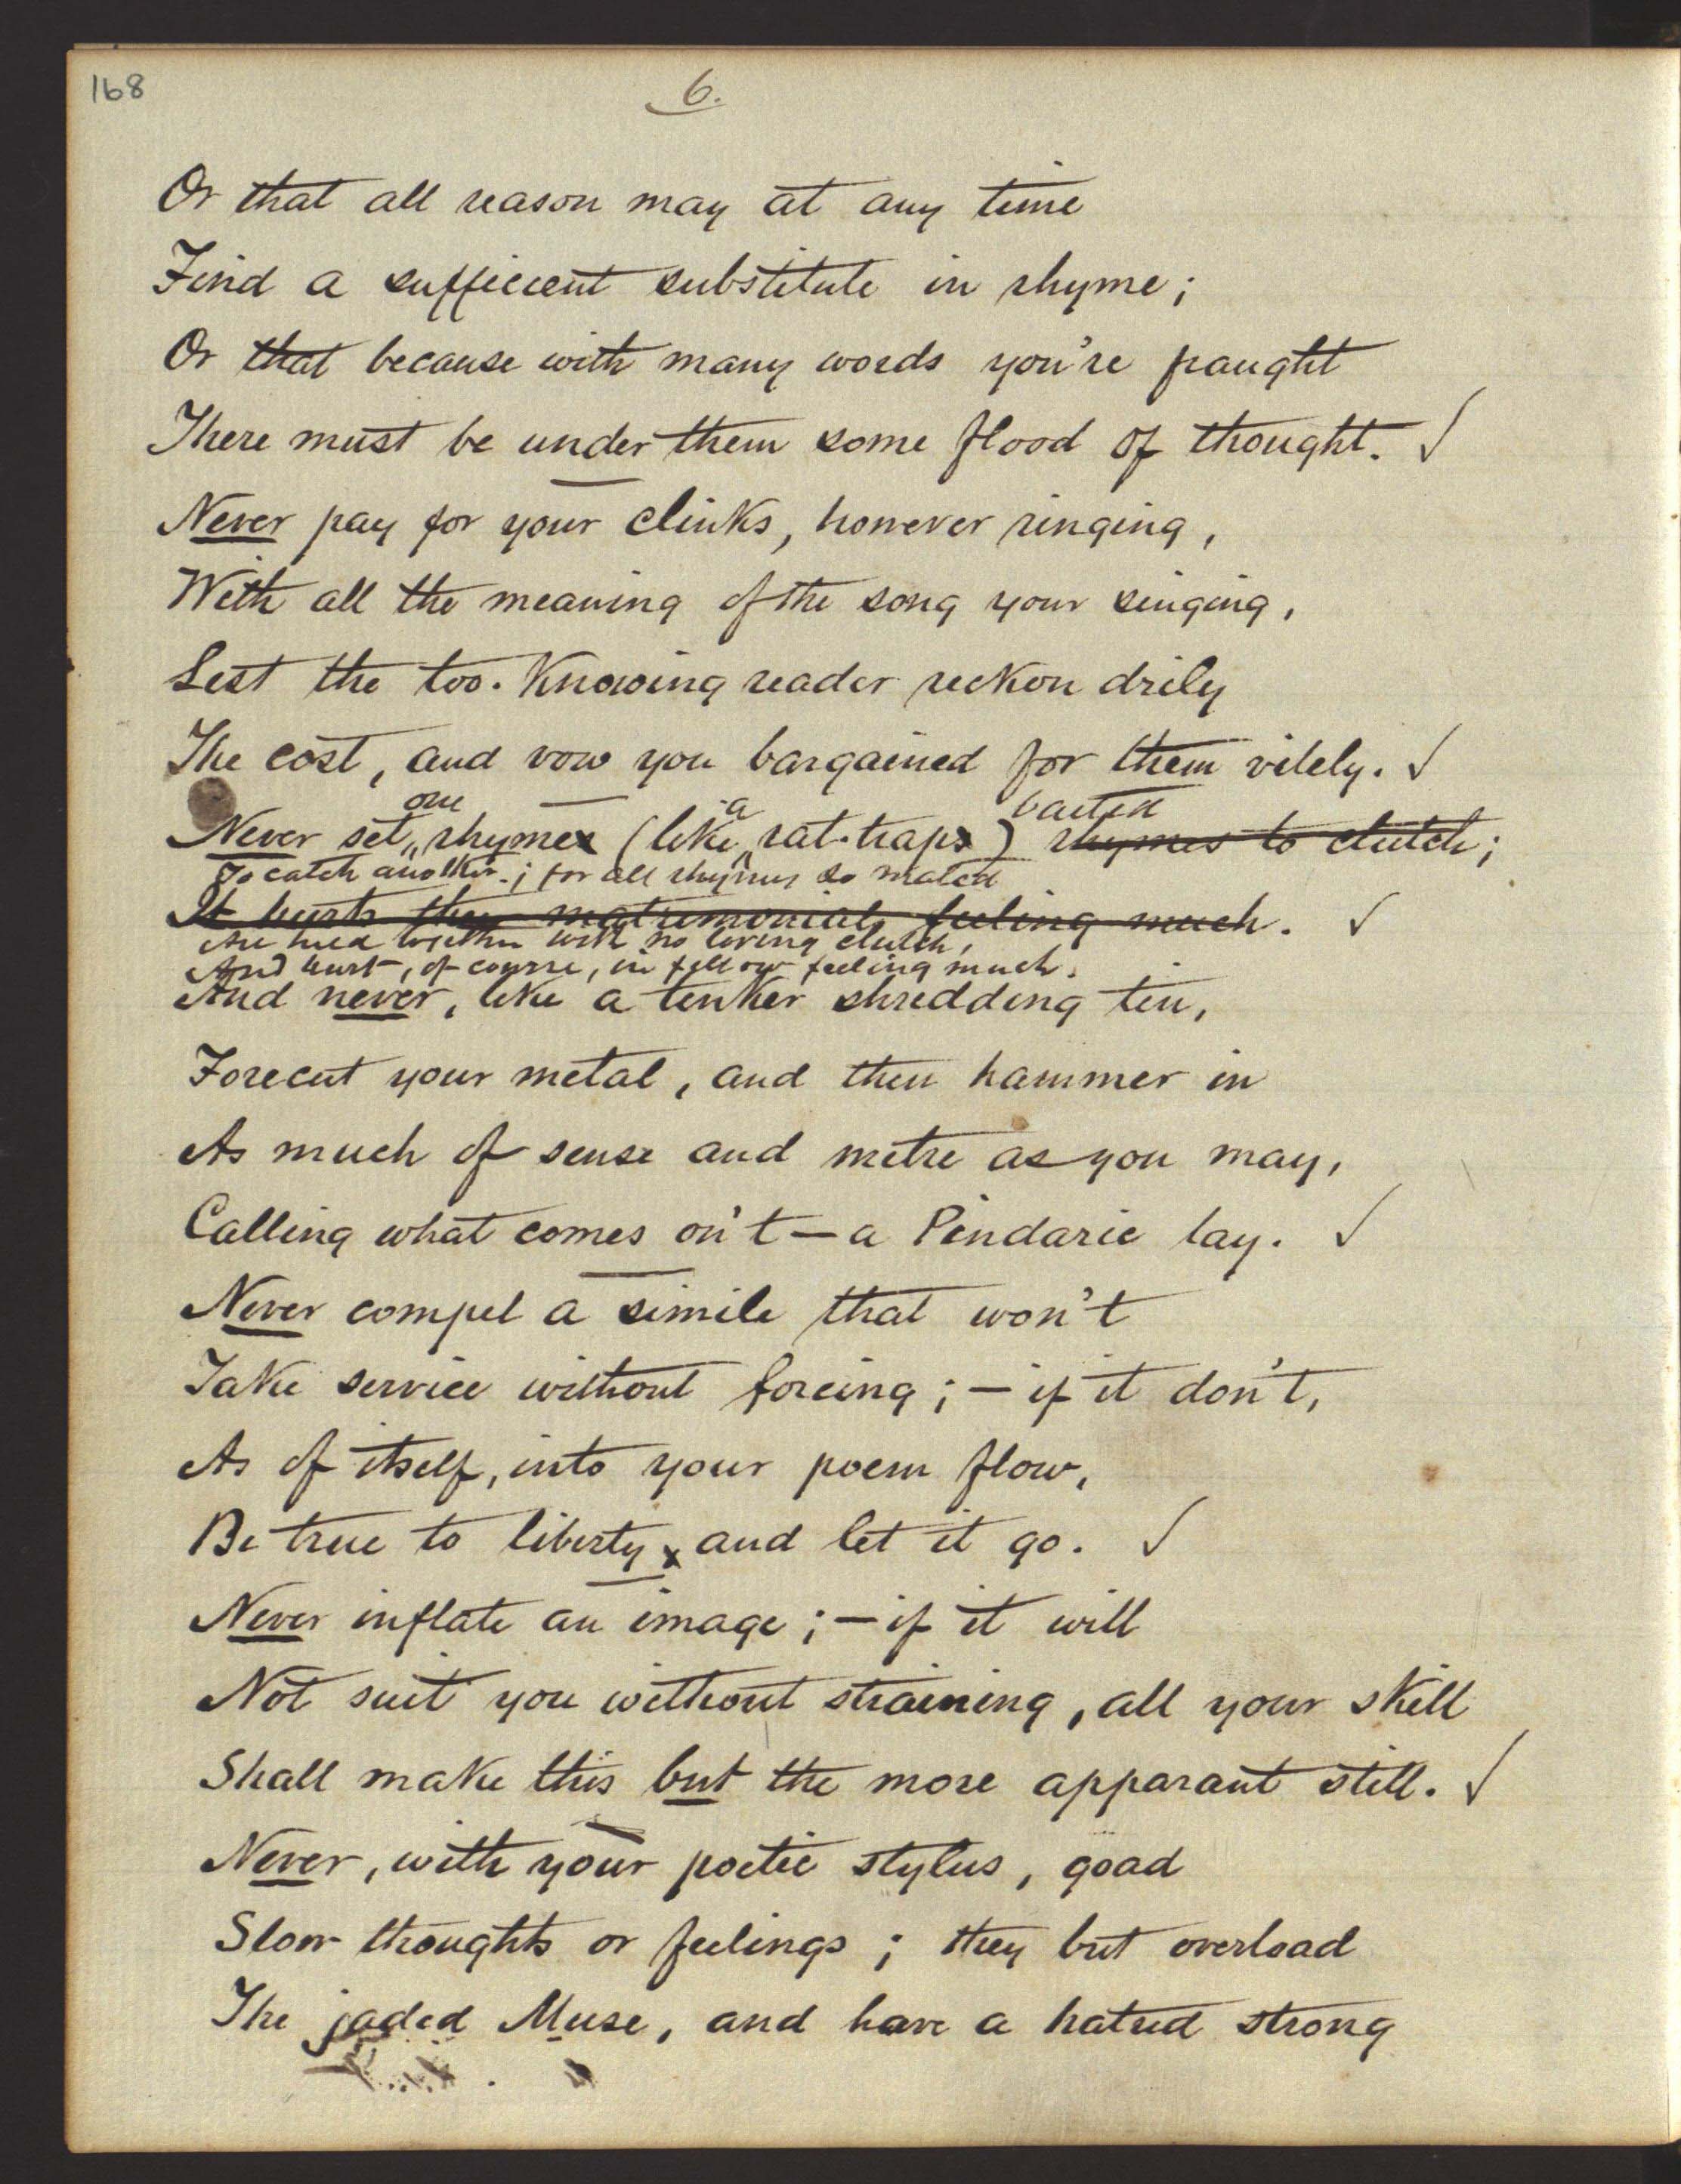 168
6.
Or that all reason may at any time
Find a sufficient substitute in rhyme;
Or that because with many words you're fraught
There must be under them some flood of thought. ✓
Never pay for your clinks, however ringing,
With all the meaning of the song your singing,
Lest the too-knowing reader reckon drily
The cost, and vow you bargained for them vilely. ✓
one a baited
Never set rhymes (like rat-traps) rhymes to clutch;
To catch another; for all rhymes so mated
It hurts their matrimonial feeling much. ✓
Are tied together with no loving clutch,
And hurt, of course, in fellow feeling much.
And never, like a tinker shredding tin,
Forecut your metal, and then hammer in
As much of sense and metre as you may,
Calling what comes on't — a Pindaric lay. ✓
Never compel a simile that won't
Take service without forcing; — if it don't,
As of itself, into your poem flow,
Be true to liberty, and let it go. ✓
Never inflate an image; — if it will
Not suit you without straining, all your skill
Shall make this but the more apparant still. ✓
Never, with your poetic stylus, goad
Slow thoughts or feelings; they but overload
The jaded Muse, and have a hatred strong